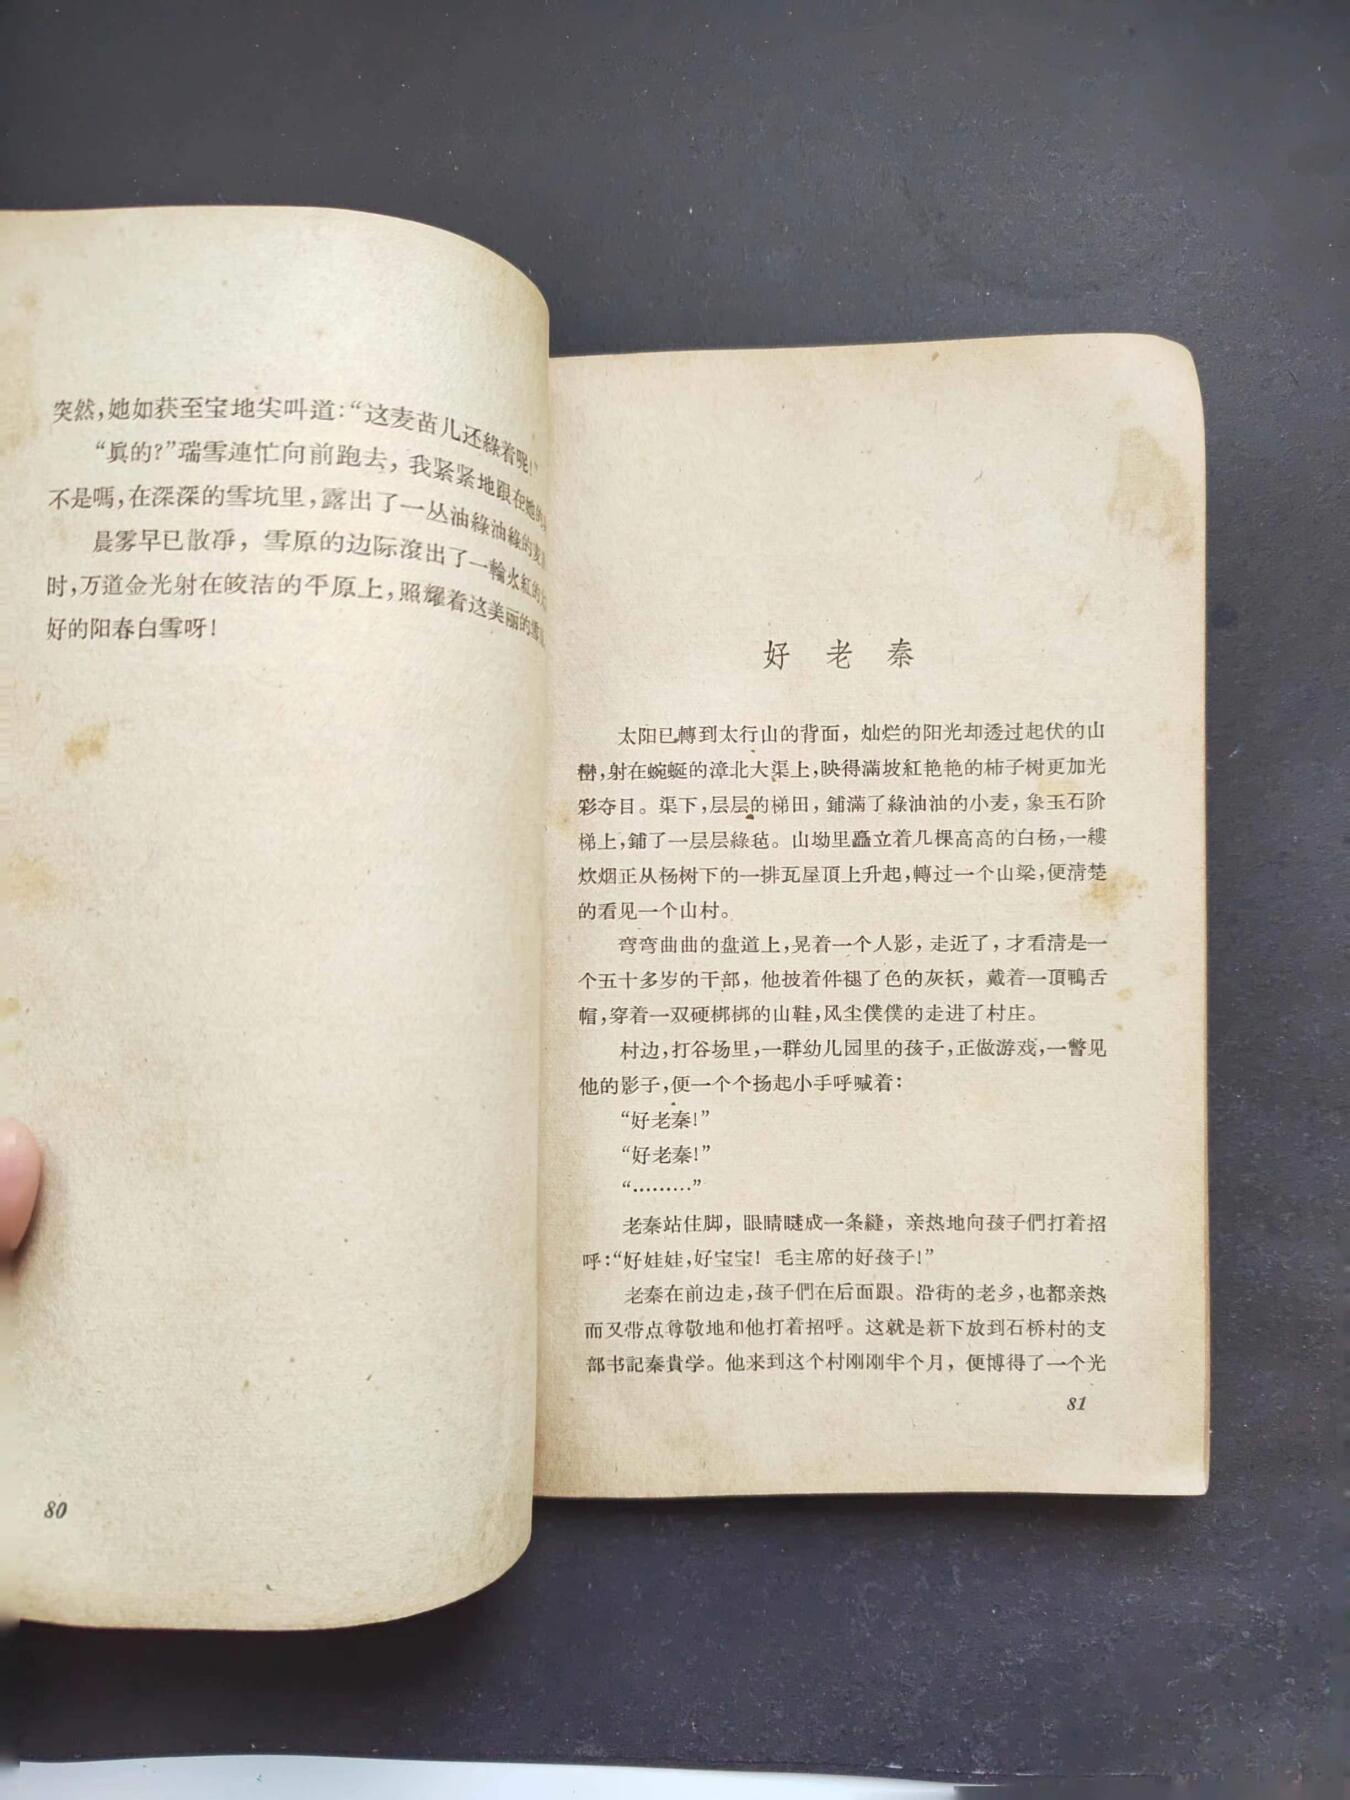 突然，她如获至宝地尖叫道：“这麦苗儿还綠着呢！”
“眞的？”瑞雪連忙向前跑去，我紧紧地跟在她的
不是嗎，在深深的雪坑里，露出了一丛油綠油綠的麦
晨雾早已散凈，雪原的边际滾出了一輪火紅的
时，万道金光射在皎洁的平原上，照耀着这美丽的雪
好的阳春白雪呀！
80
好老秦
太阳已轉到太行山的背面，灿烂的阳光却透过起伏的山
巒，射在蜿蜒的漳北大渠上，映得滿坡紅艳艳的柿子树更加光
彩夺目。渠下，层层的梯田，鋪滿了綠油油的小麦，象玉石阶
梯上，鋪了一层层綠毡。山坳里矗立着几棵高高的白杨，一縷
炊烟正从杨树下的一排瓦屋頂上升起，轉过一个山梁，便清楚
的看见一个山村。
弯弯曲曲的盘道上，晃着一个人影，走近了，才看清是一
个五十多岁的干部，他披着件褪了色的灰袄，戴着一頂鴨舌
帽，穿着一双硬梆梆的山鞋，风尘僕僕的走进了村庄。
村边，打谷场里，一群幼儿园里的孩子，正做游戏，一瞥见
他的影子，便一个个扬起小手呼喊着：
“好老秦！”
“好老秦！”
“………”
老秦站住脚，眼睛瞇成一条縫，亲热地向孩子們打着招
呼：“好娃娃，好宝宝！毛主席的好孩子！”
老秦在前边走，孩子們在后面跟。沿街的老乡，也都亲热
而又带点尊敬地和他打着招呼。这就是新下放到石桥村的支
部书記秦貴学。他来到这个村刚刚半个月，便博得了一个光
81